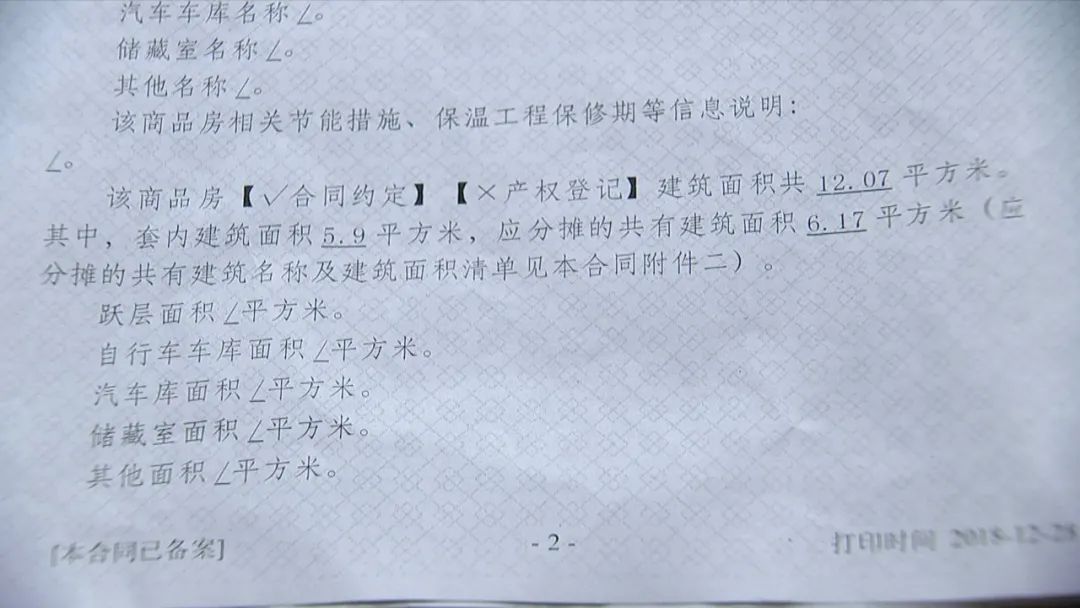 汽车车库名称∠。
储藏室名称∠。
其他名称∠。
该商品房相关节能措施、保温工程保修期等信息说明：
∠。
该商品房【√合同约定】【×产权登记】建筑面积共 12.07 平方米。
其中，套内建筑面积 5.9 平方米，应分摊的共有建筑面积 6.17 平方米（应
分摊的共有建筑名称及建筑面积清单见本合同附件二）。
跃层面积∠平方米。
自行车车库面积∠平方米。
汽车库面积∠平方米。
储藏室面积∠平方米。
其他面积∠平方米。
[本合同已备案]
- 2 -
打印时间 2018-12-28